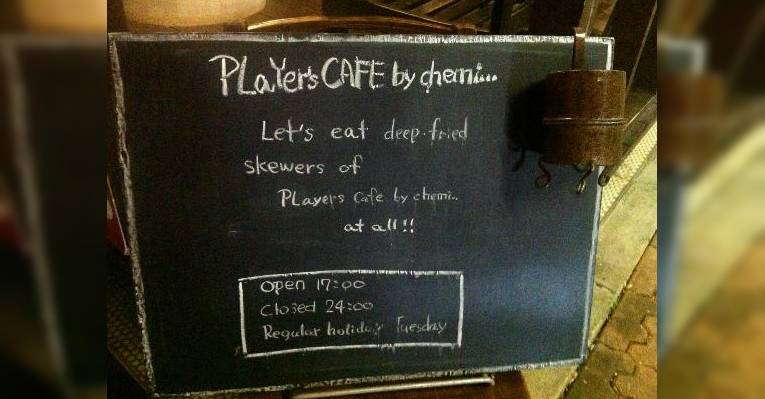 PLaYer's CAFE by chemi...
Let's eat deep-fried
skewers of
PLayers Cafe by chemi..
at all!!
Open 17:00
Closed 24:00
Regular holiday Tuesday